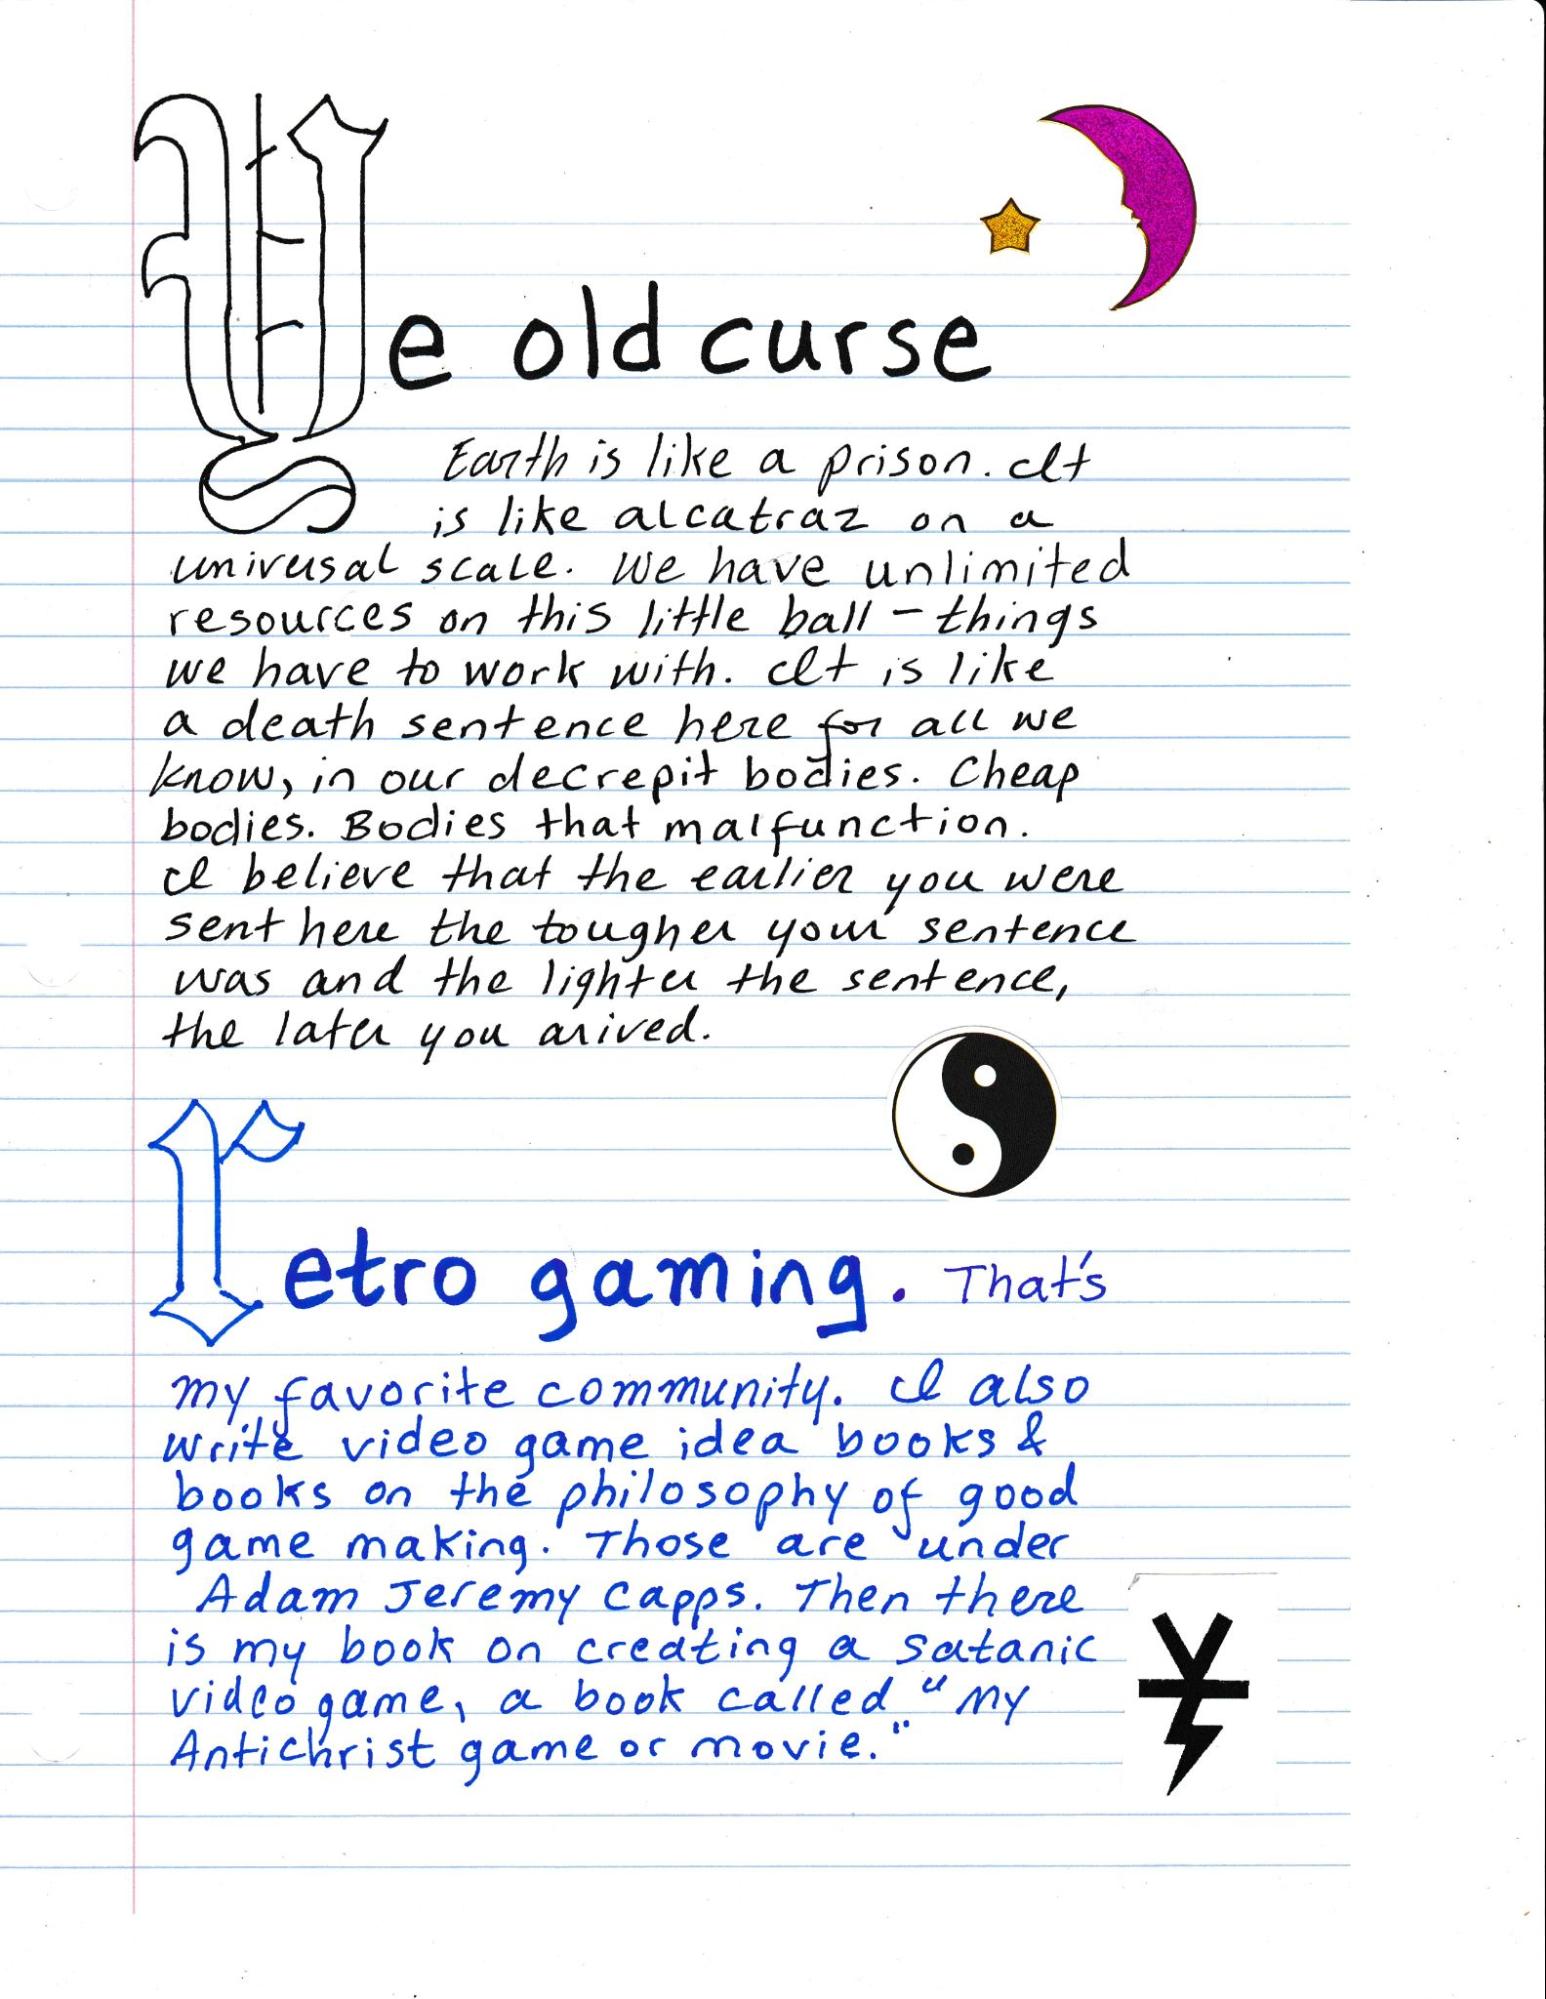 Ye old curse
Earth is like a prison. It
is like alcatraz on a
universal scale. We have unlimited
resources on this little ball - things
we have to work with. It is like
a death sentence here for all we
know, in our decrepit bodies. Cheap
bodies. Bodies that malfunction.
I believe that the earlier you were
sent here the tougher your sentence
was and the lighter the sentence,
the later you arived.
retro gaming. That's
my favorite community. I also
write video game idea books &
books on the philosophy of good
game making. Those are under
Adam Jeremy Capps. Then there
is my book on creating a satanic
video game, a book called "My
Antichrist game or movie."